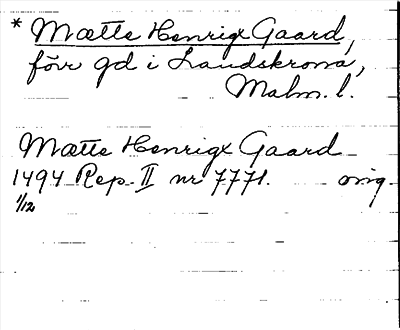 * Mætte Henrigx Gaard,
förr gd i Landskrona,
Malm. l.
Mætte Henrigx Gaard
1494 Rep. II nr 7771. orig.
1/12